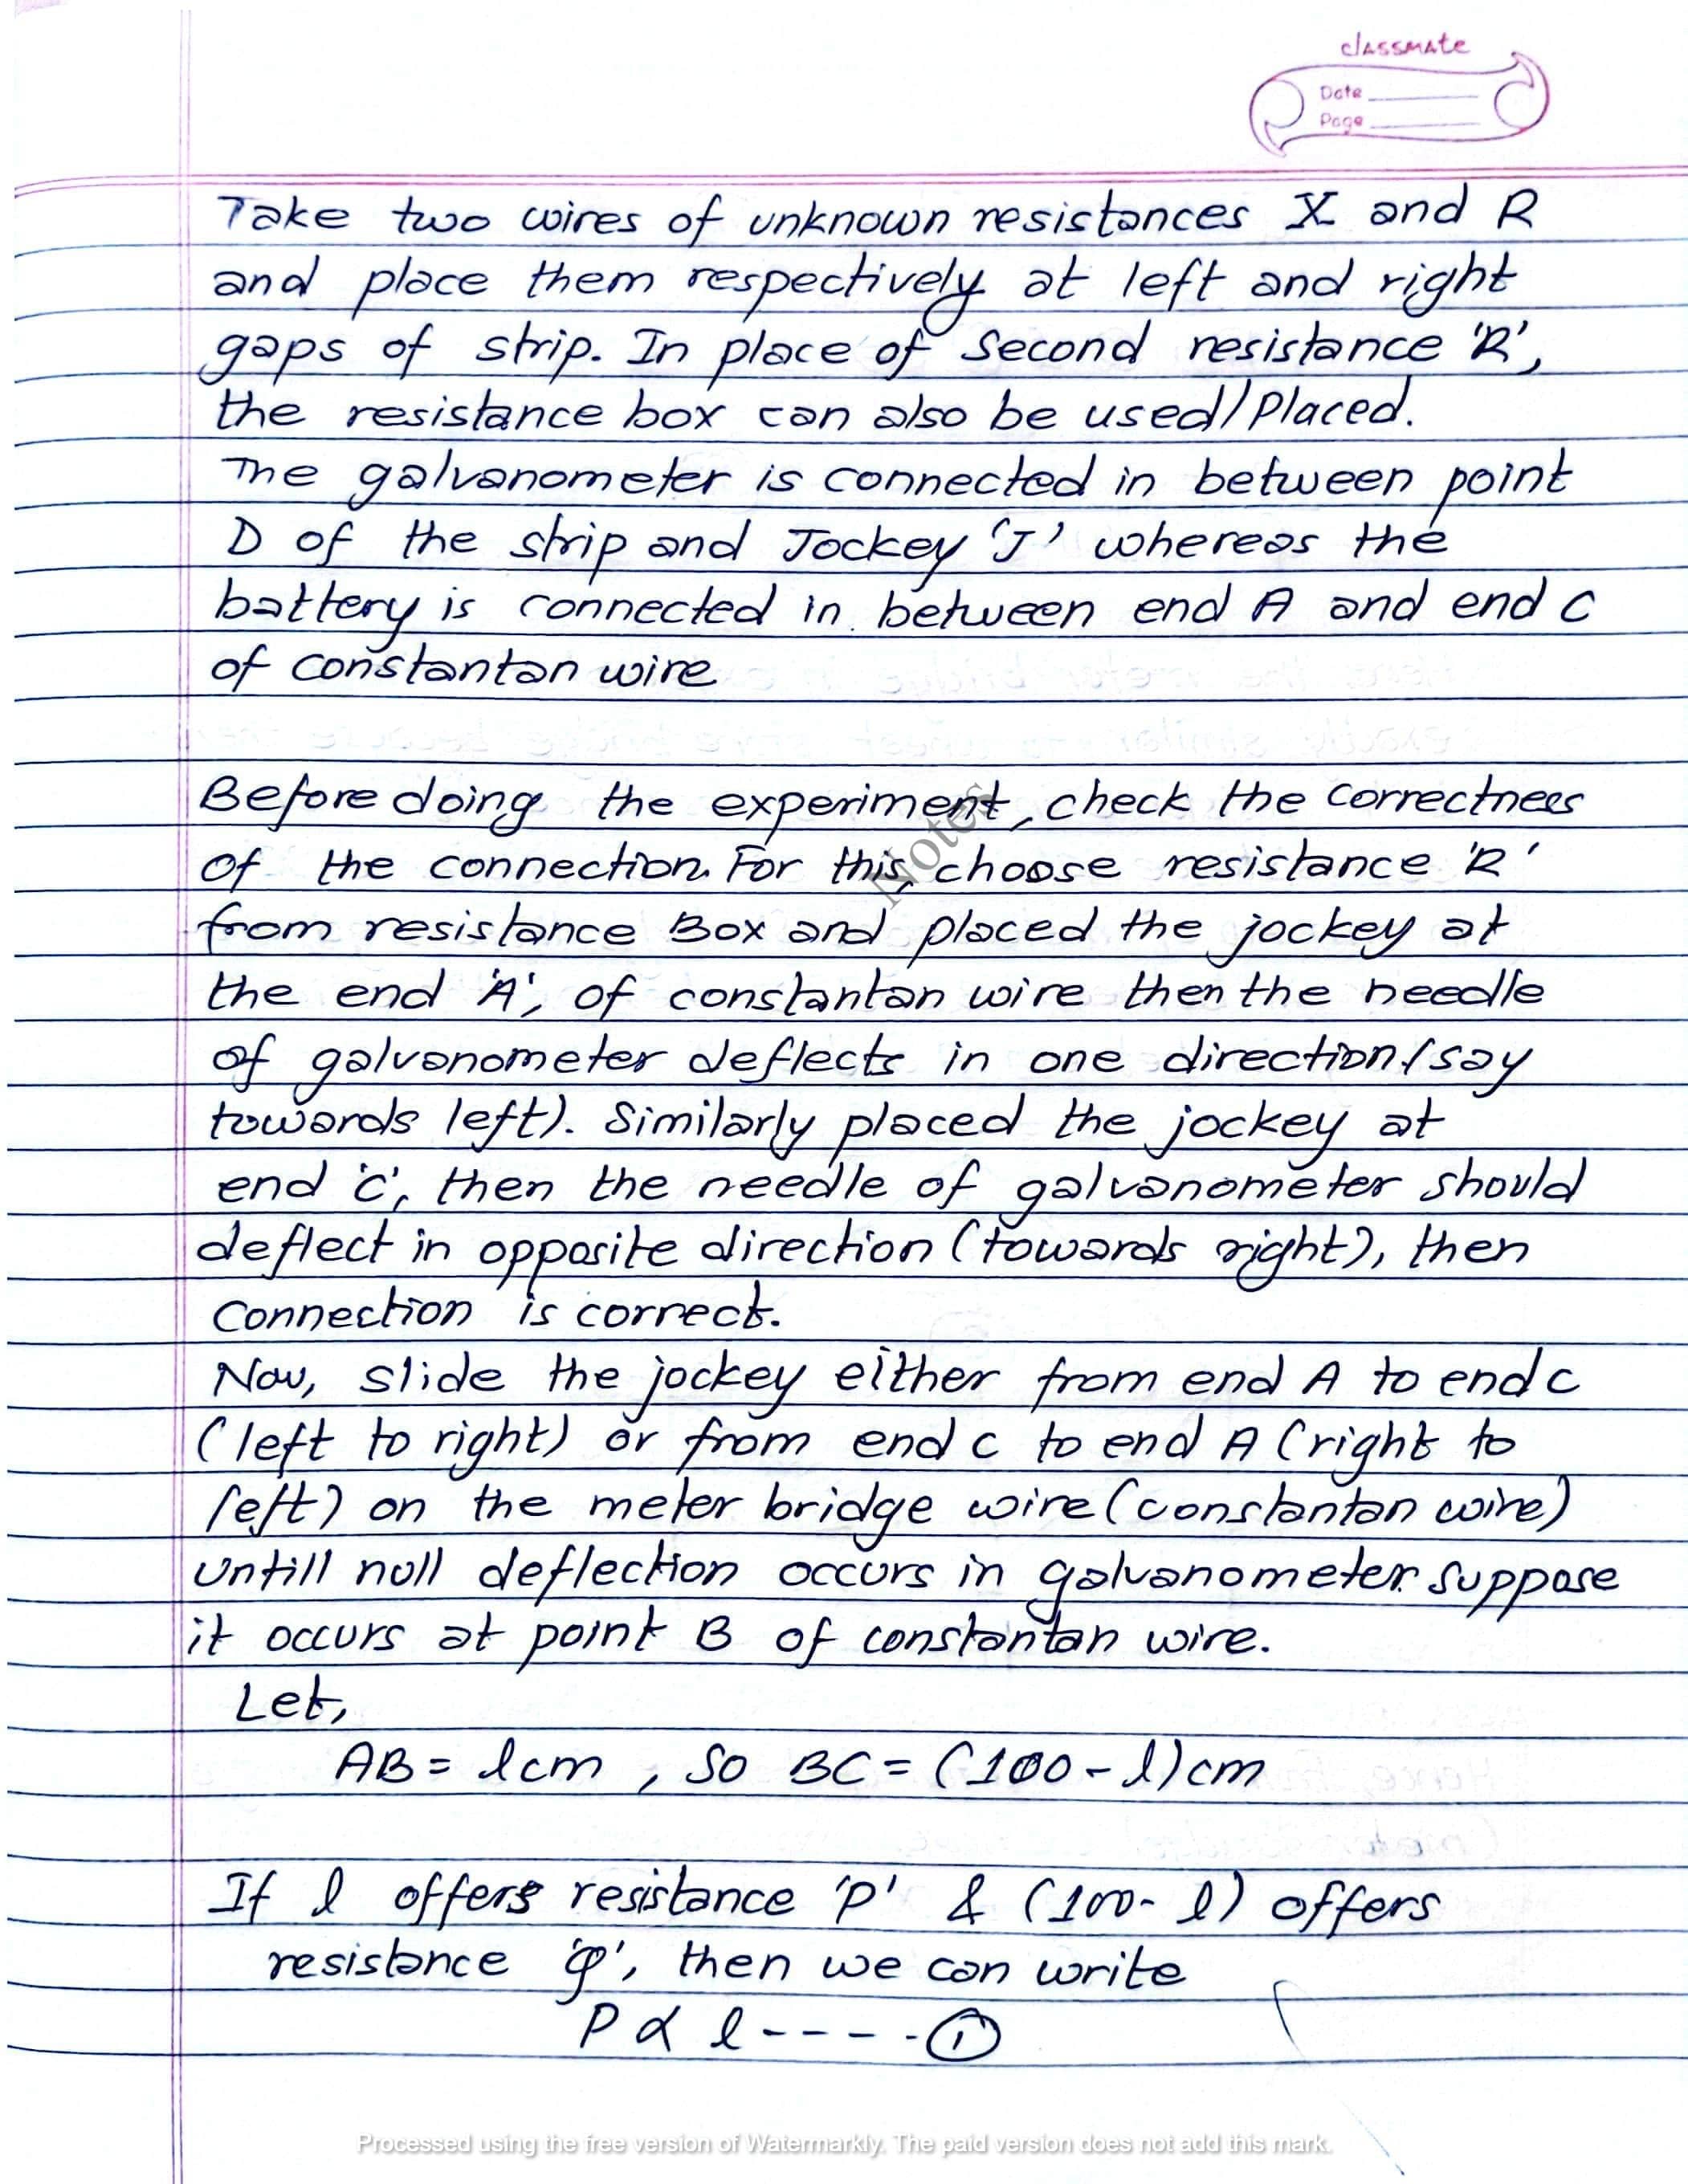 classmate
Date
Page
Take two wires of unknown resistances X and R
and place them respectively at left and right
gaps of strip. In place of second resistance 'R',
the resistance box can also be used/placed.
The galvanometer is connected in between point
D of the strip and Jockey 'J' whereas the
battery is connected in between end A and end C
of constantan wire
Before doing the experiment, check the correctness
of the connection. For this, choose resistance 'R'
from resistance Box and placed the jockey at
the end 'A', of constantan wire then the needle
of galvanometer deflects in one direction (say
towards left). Similarly placed the jockey at
end 'C', then the needle of galvanometer should
deflect in opposite direction (towards right), then
Connection is correct.
Now, slide the jockey either from end A to end c
(left to right) or from end c to end A (right to
left) on the meter bridge wire (constantan wire)
untill null deflection occurs in galvanometer. suppose
it occurs at point B of constantan wire.
Let,
AB = l cm , so BC = (100 - l) cm
If l offers resistance 'P' & (100 - l) offers
resistance 'Q', then we can write
P ∝ l - - - - - ①
Notes
Processed using the free version of Watermarkly. The paid version does not add this mark.